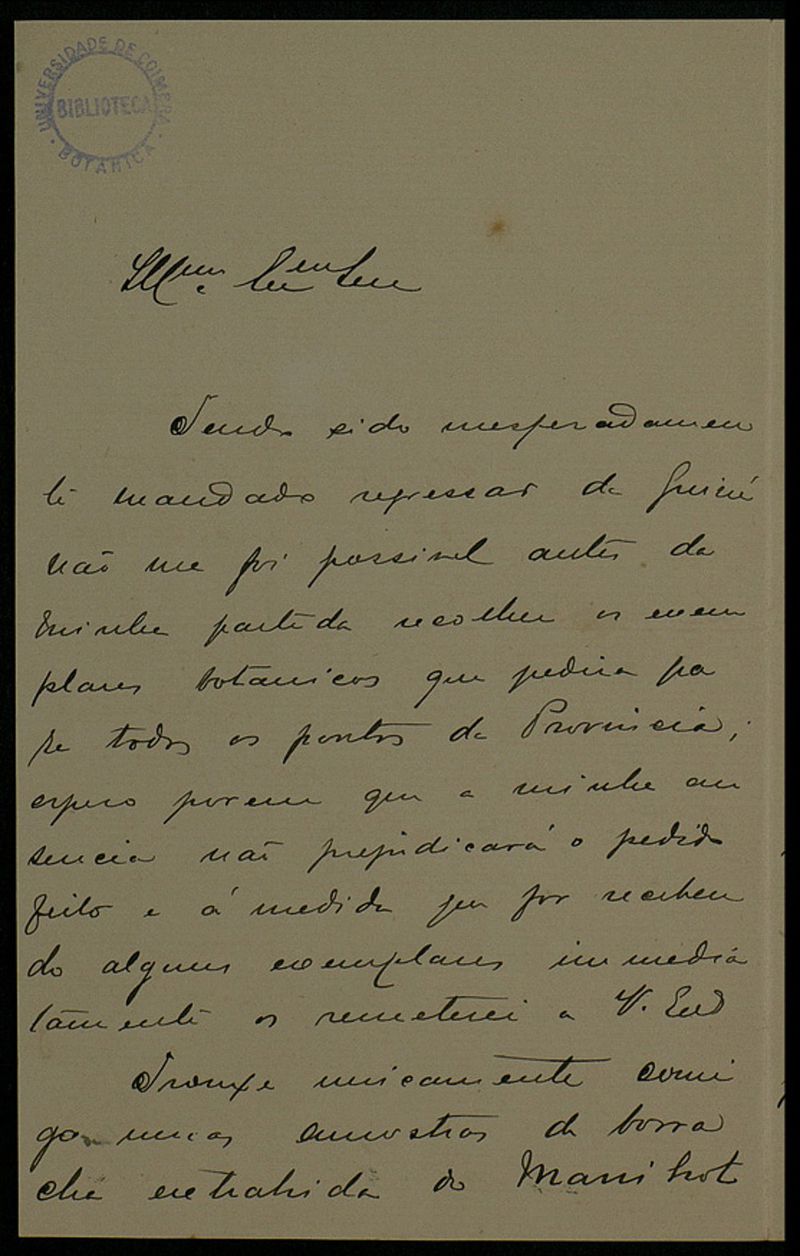 UNIVERSIDADE DE COIMBRA
BIBLIOTECA
BOTANICA
Illmo. Exmo Snr
Tendo sido inesperadamen
te mandado regressar da Guiné
não me foi possivel antes da
minha partida recolher os exem
plares botanicos que pedira pa
ra todos os pontos da Provincia;
espero porem que a minha au
sencia não prejudicará o pedido
feito e á medida que for receben
do alguns exemplares immedia
tamente os remeterei a V. Exª
Trouxe unicamente comi
go umas amostras de borra
cha extrahida do Manihot